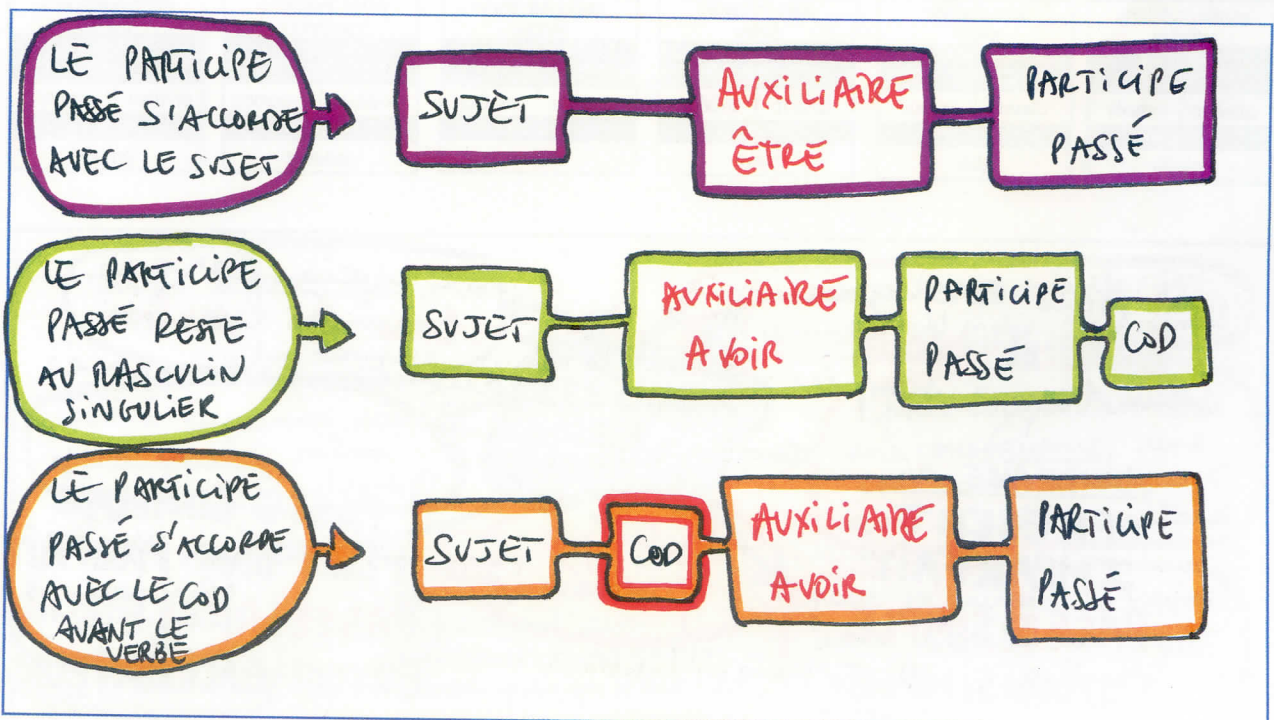 LE PARTICIPE
PASSÉ S'ACCORDE
AVEC LE SUJET
SUJET
AUXILIAIRE
ÊTRE
PARTICIPE
PASSÉ
LE PARTICIPE
PASSÉ RESTE
AU MASCULIN
SINGULIER
SUJET
AUXILIAIRE
AVOIR
PARTICIPE
PASSÉ
COD
LE PARTICIPE
PASSÉ S'ACCORDE
AVEC LE COD
AVANT LE
VERBE
SUJET
COD
AUXILIAIRE
AVOIR
PARTICIPE
PASSÉ